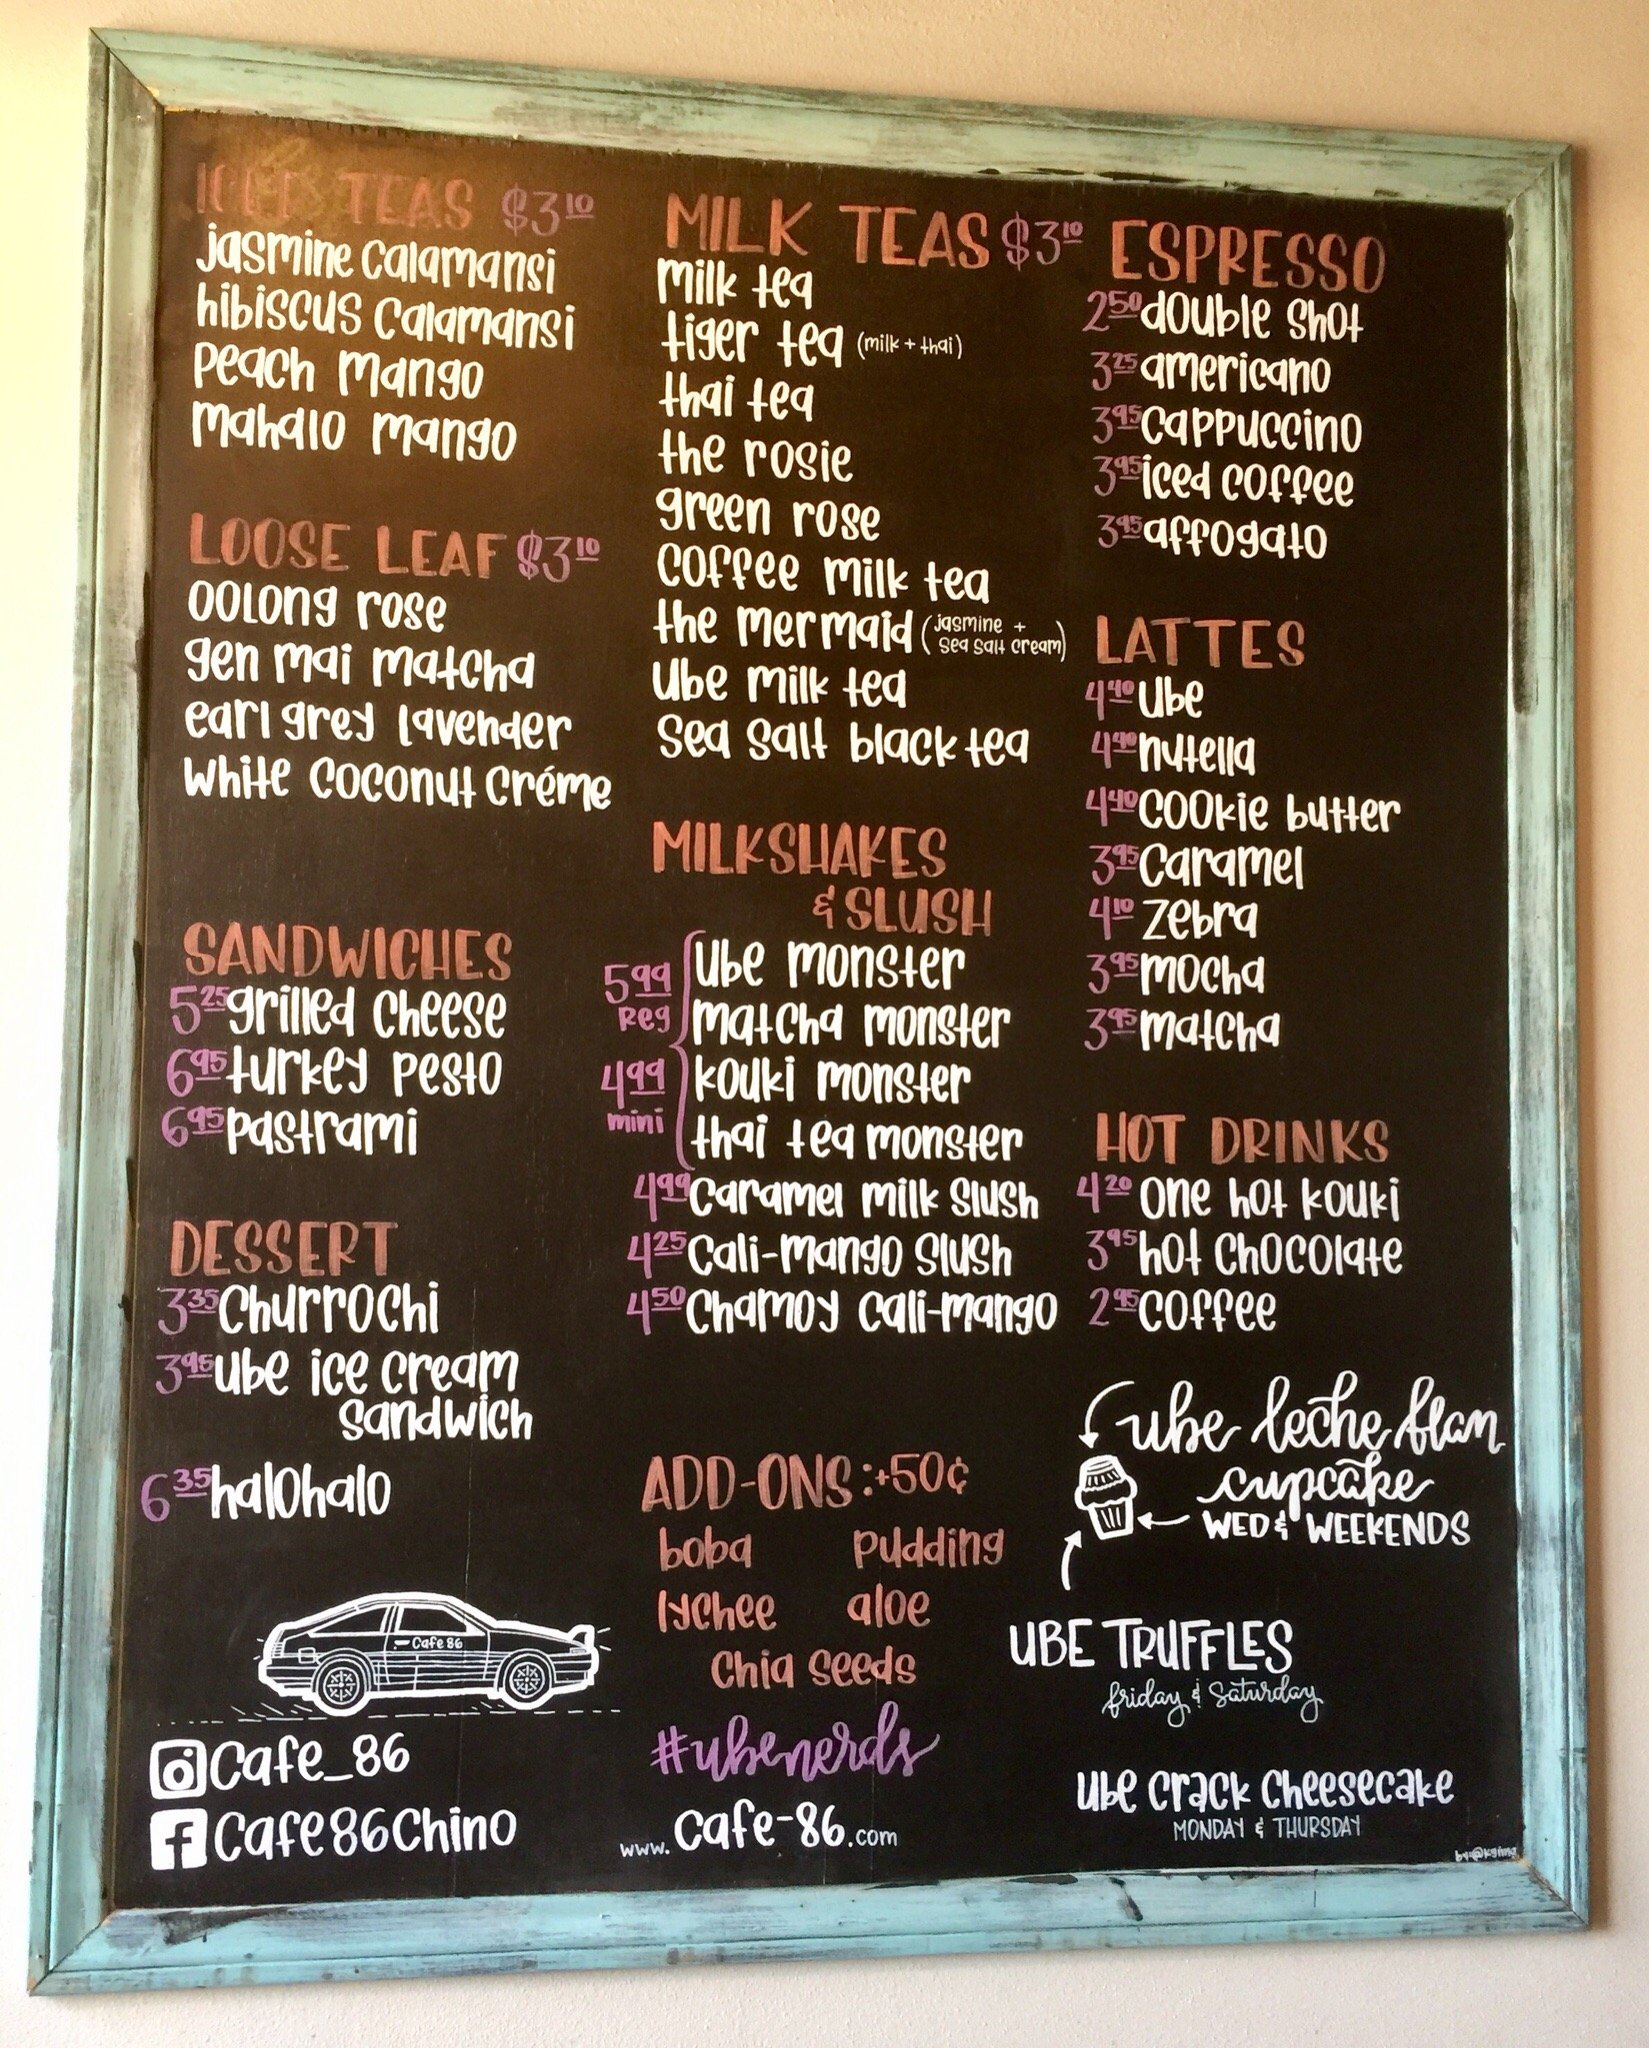 ICED TEAS $3.10
jasmine calamansi
hibiscus calamansi
peach mango
mahalo mango
LOOSE LEAF $3.10
oolong rose
gen mai matcha
earl grey lavender
white coconut créme
SANDWICHES
5.25 grilled cheese
6.95 turkey pesto
6.95 pastrami
DESSERT
3.35 churrochi
3.95 ube ice cream
sandwich
6.35 halohalo
Cafe 86
Cafe_86
f Cafe86Chino
MILK TEAS $3.10
milk tea
tiger tea (milk + thai)
thai tea
the rosie
green rose
coffee milk tea
the mermaid (jasmine +
sea salt cream)
ube milk tea
sea salt black tea
MILKSHAKES
& SLUSH
5.99 reg
4.99 mini
ube monster
matcha monster
kouki monster
thai tea monster
4.99 caramel milk slush
4.25 cali-mango slush
4.50 chamoy cali-mango
ADD-ONS: +50¢
boba pudding
lychee aloe
chia seeds
#ubenerds
www.cafe-86.com
ESPRESSO
2.50 double shot
3.25 americano
3.95 cappuccino
3.95 iced coffee
3.95 affogato
LATTES
4.40 ube
4.40 nutella
4.40 cookie butter
3.95 caramel
4.10 zebra
3.95 mocha
3.95 matcha
HOT DRINKS
4.20 one hot kouki
3.95 hot chocolate
2.95 coffee
ube leche flan
cupcake
WED & WEEKENDS
UBE TRUFFLES
friday & saturday
ube crack cheesecake
MONDAY & THURSDAY